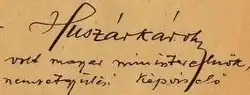 Huszár Károly
volt magyar miniszterelnök,
nemzetgyűlési képviselő